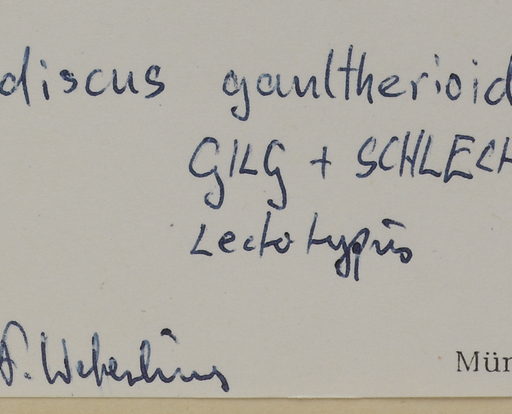 discus gaultherioid
GILG + SCHLECH
Lectotypus
F. Weberling
Mün